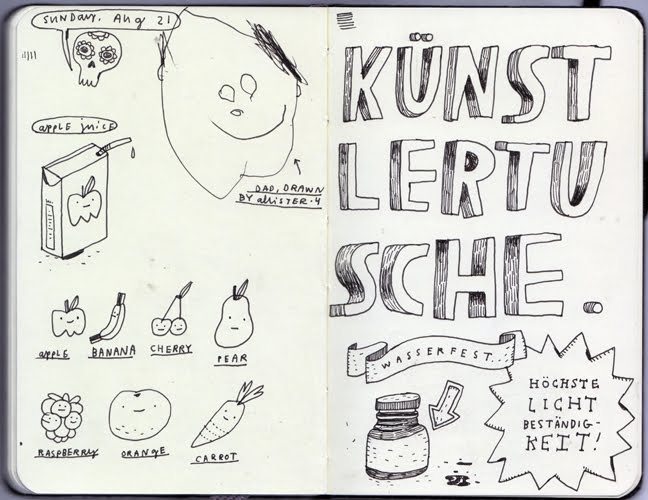 SUNDAY, AUG 21
apple juice
DAD, DRAWN
BY allISTER·4
apple
BANANA
CHERRY
PEAR
RASPBERRY
ORANGE
CARROT
KÜNST
LERTU
SCHE.
WASSERFEST...
HÖCHSTE
LICHT
BESTÄNDIG-
KEIT!